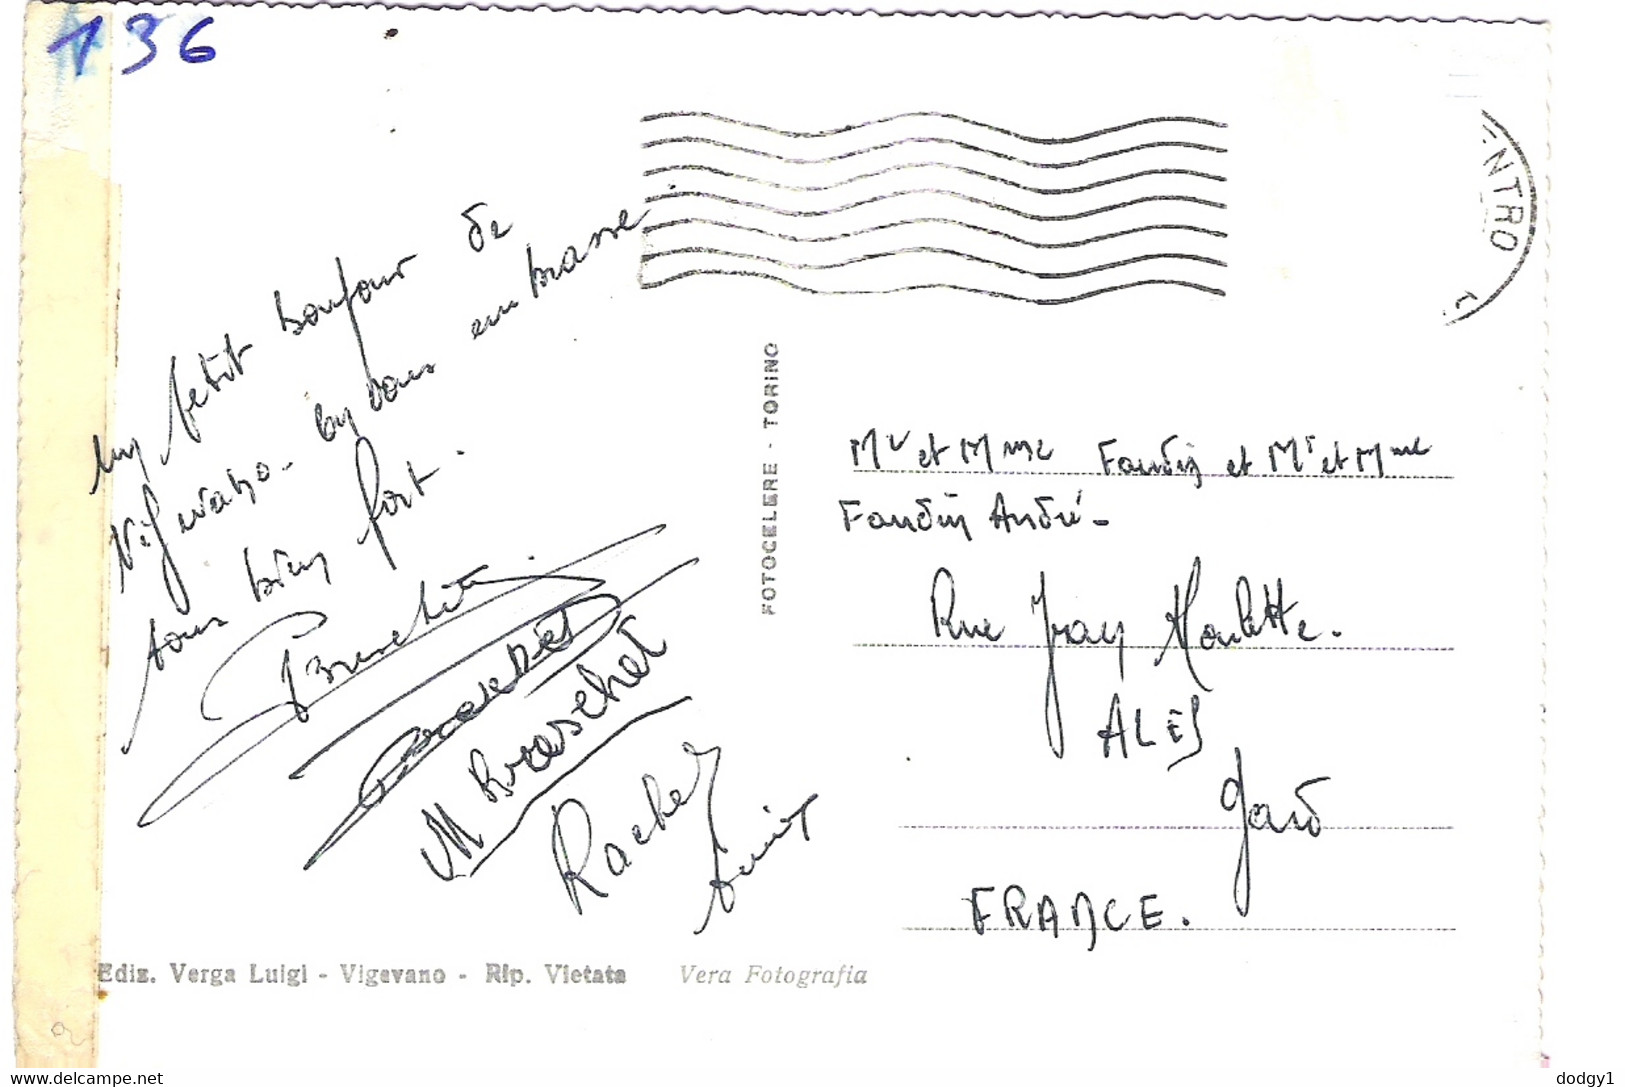 136
un petit bonjour de
Vigevano. on vous embrasse
tous bien fort.
M Braschet
Rachel
ENTRO
FOTOCELERE - TORINO
Mr et Mme Faudin et Mr et Mme
Faudin André -
Rue Jean Moulette.
ALES
Gard
FRANCE.
Ediz. Verga Luigi - Vigevano - Rip. Vietata Vera Fotografia
dodgy1